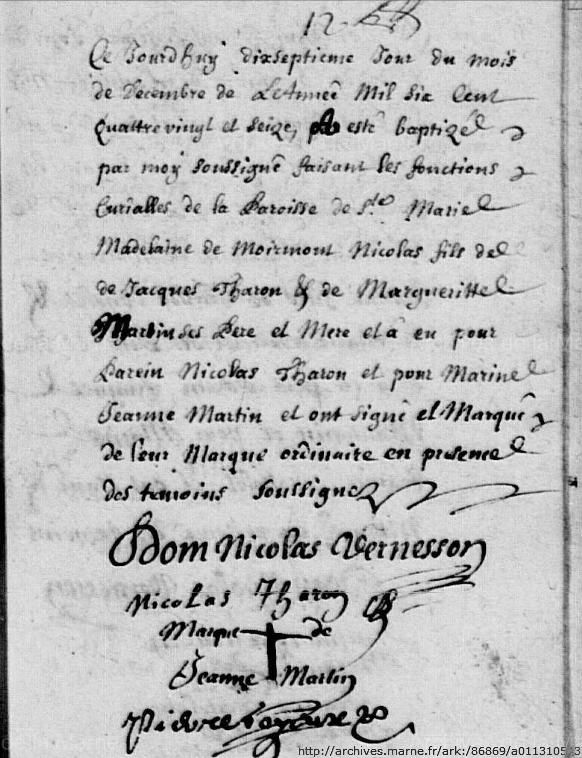 12
Ce Jourdhuy dixseptieme Jour du mois
de Decembre de LAnneê Mil Six Cent
Quattrevingt et Seize, A estê baptizê
par moy soussignê faisant les fonctions
Curialles de la Paroisse de Ste Marie
Madelaine de Moirmont Nicolas fils de
de Jacques Tharon & de Margueritte
Martin ses Pere et Mere et â eu pour
Parein Nicolas Tharon et pour Marine
Jeanne Martin et ont signê et Marquê
de leur Marque ordinaire en presence
des temoins soussignez
Dom Nicolas Vernesson
Nicolas Tharon
Marque de
Jeanne Martin
http://archives.marne.fr/ark:/86869/a0113105